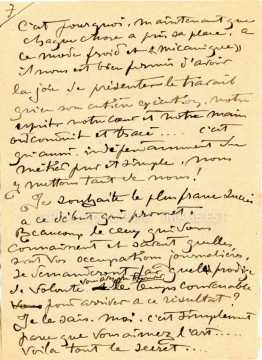 7
C'est pourquoi, maintenant que
chaque chose a pris sa place, a
ce mot froid et «mécanique»
il nous est bien permis d'avoir
la joie de présenter le travail
qui en son entière exécution, notre
esprit notre cœur et notre main
ont conduit et tracé.... c'est
qu'aussi indépendamment du
métier pur et simple, nous
y mettons tant de nous!
Je souhaite le plus franc succès
a ce début qui promet.
Beaucoup de ceux qui vous
connaissent et savent quelles
sont vos occupations journalières,
se demanderont par quel prodige
de volonté le temps convenable
pour arriver a ce résultat?
Je le sais, moi. c'est simplement
parce que vous aimez l'art.....
Voilà tout le secret...